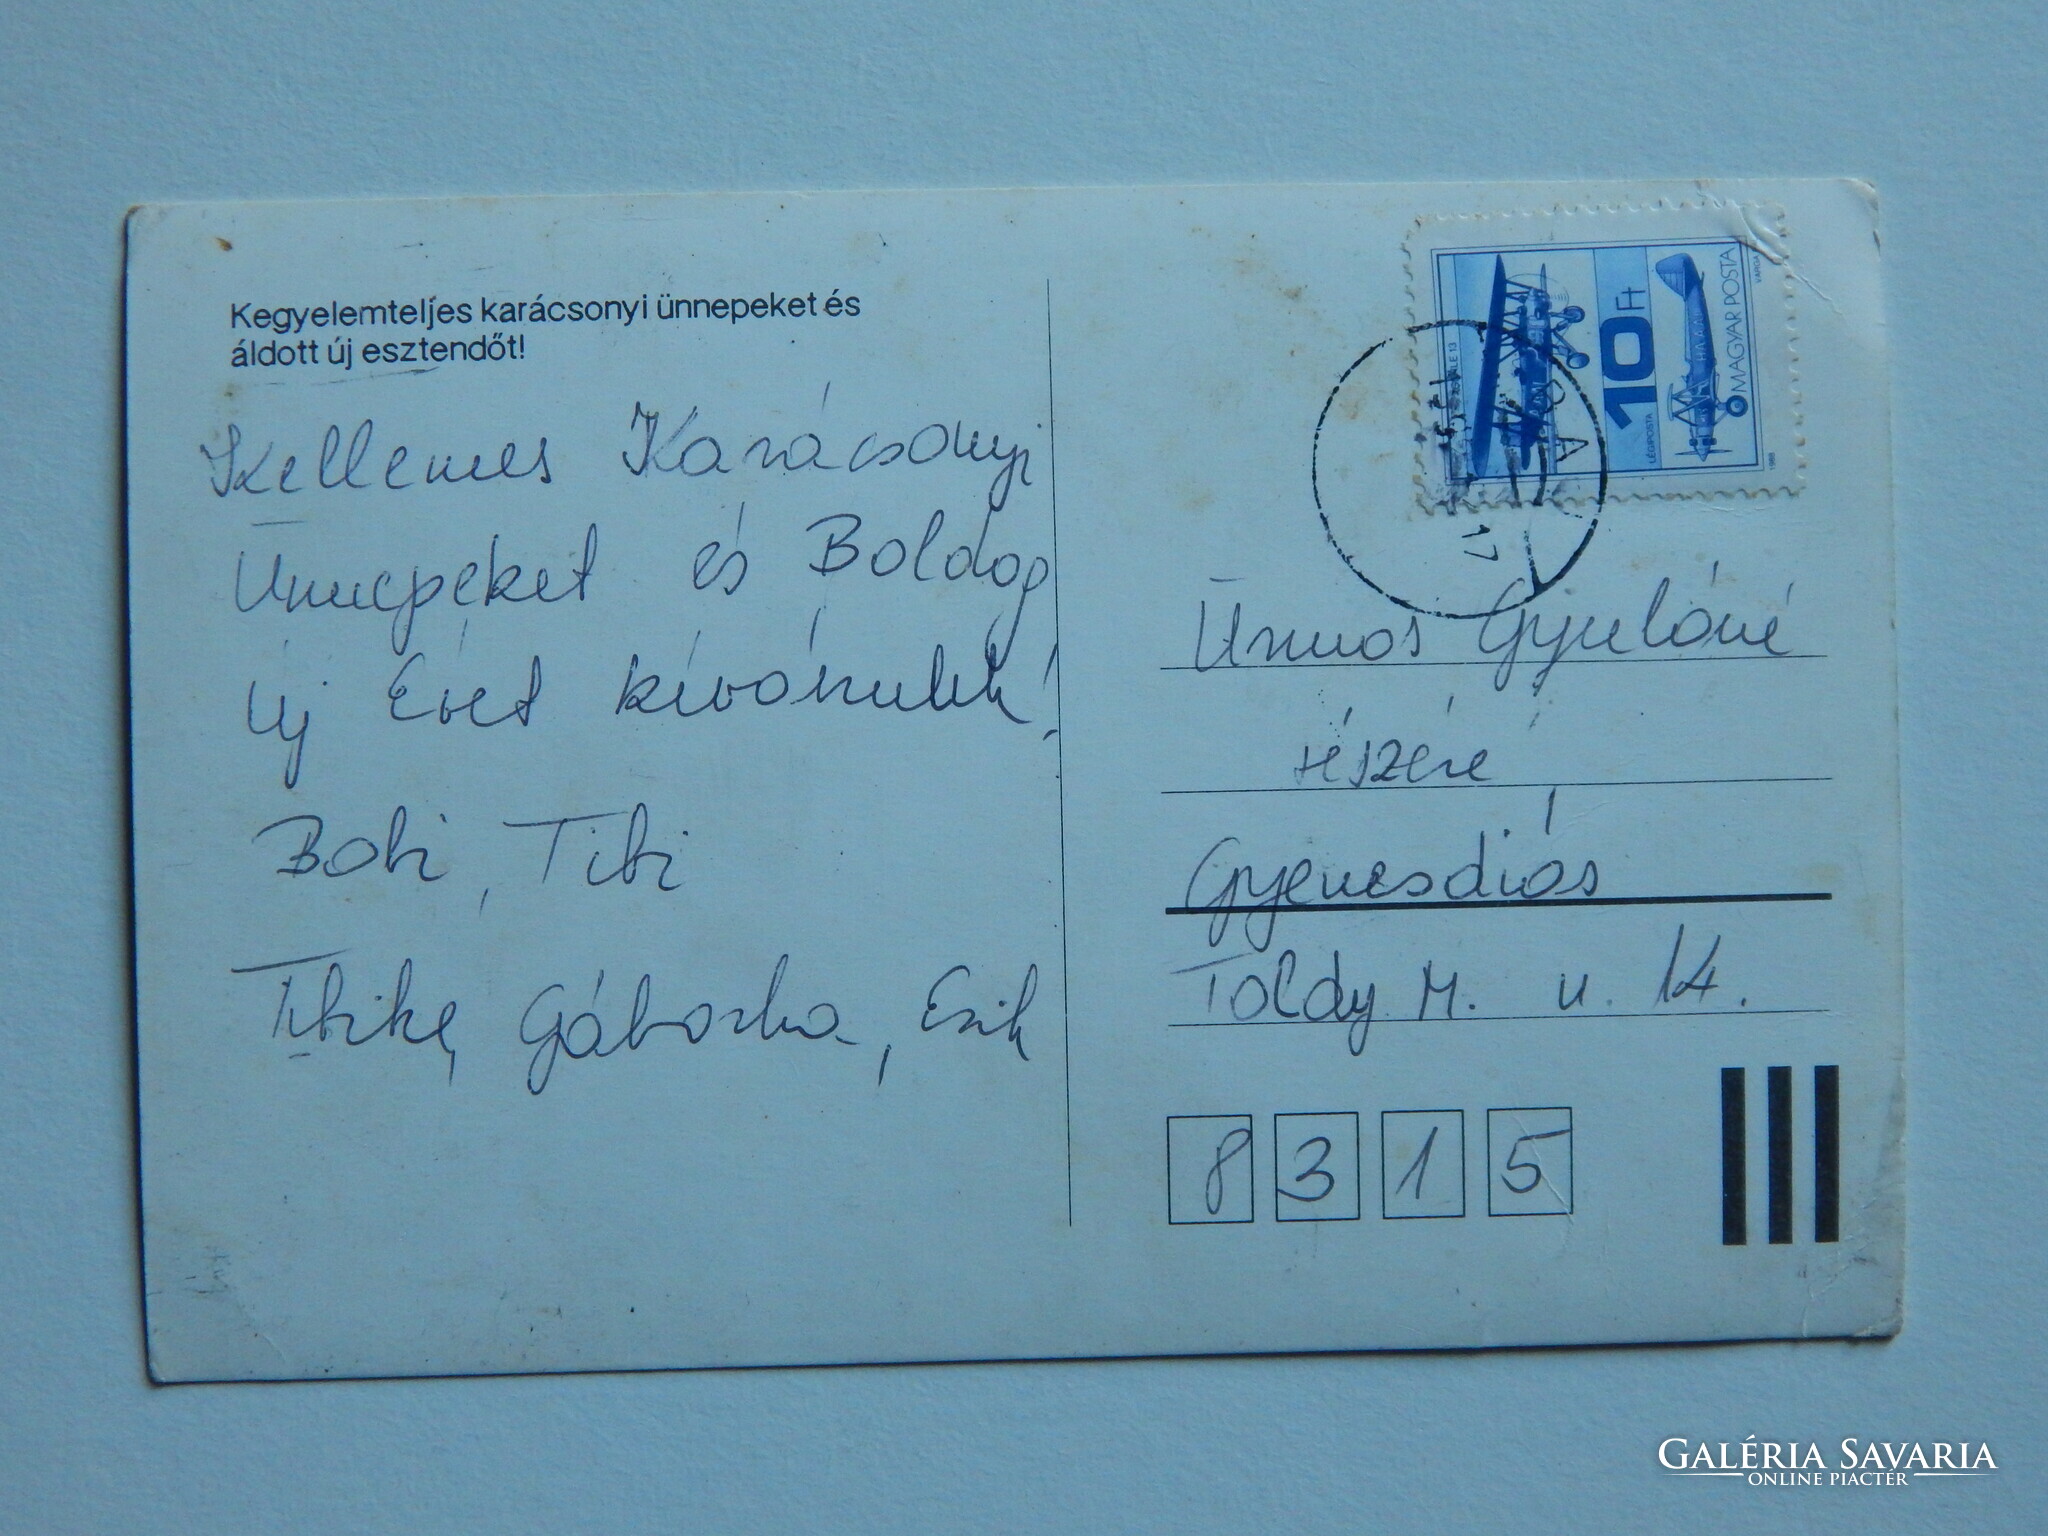 Kegyelemteljes karácsonyi ünnepeket és
áldott új esztendőt!
Kellemes Karácsonyi
Ünnepeket és Boldog
Új Évet kívánunk!
Bobi, Tibi
Tibike, Gáborka, Erik
10 Ft
LÉGIPOSTA
MAGYAR POSTA
VARGA
1988
17
Ürmos Gyuláné
részére
Gyenesdiós
Toldy M. u. 14.
8 3 1 5
GALÉRIA SAVARIA
ONLINE PIACTÉR